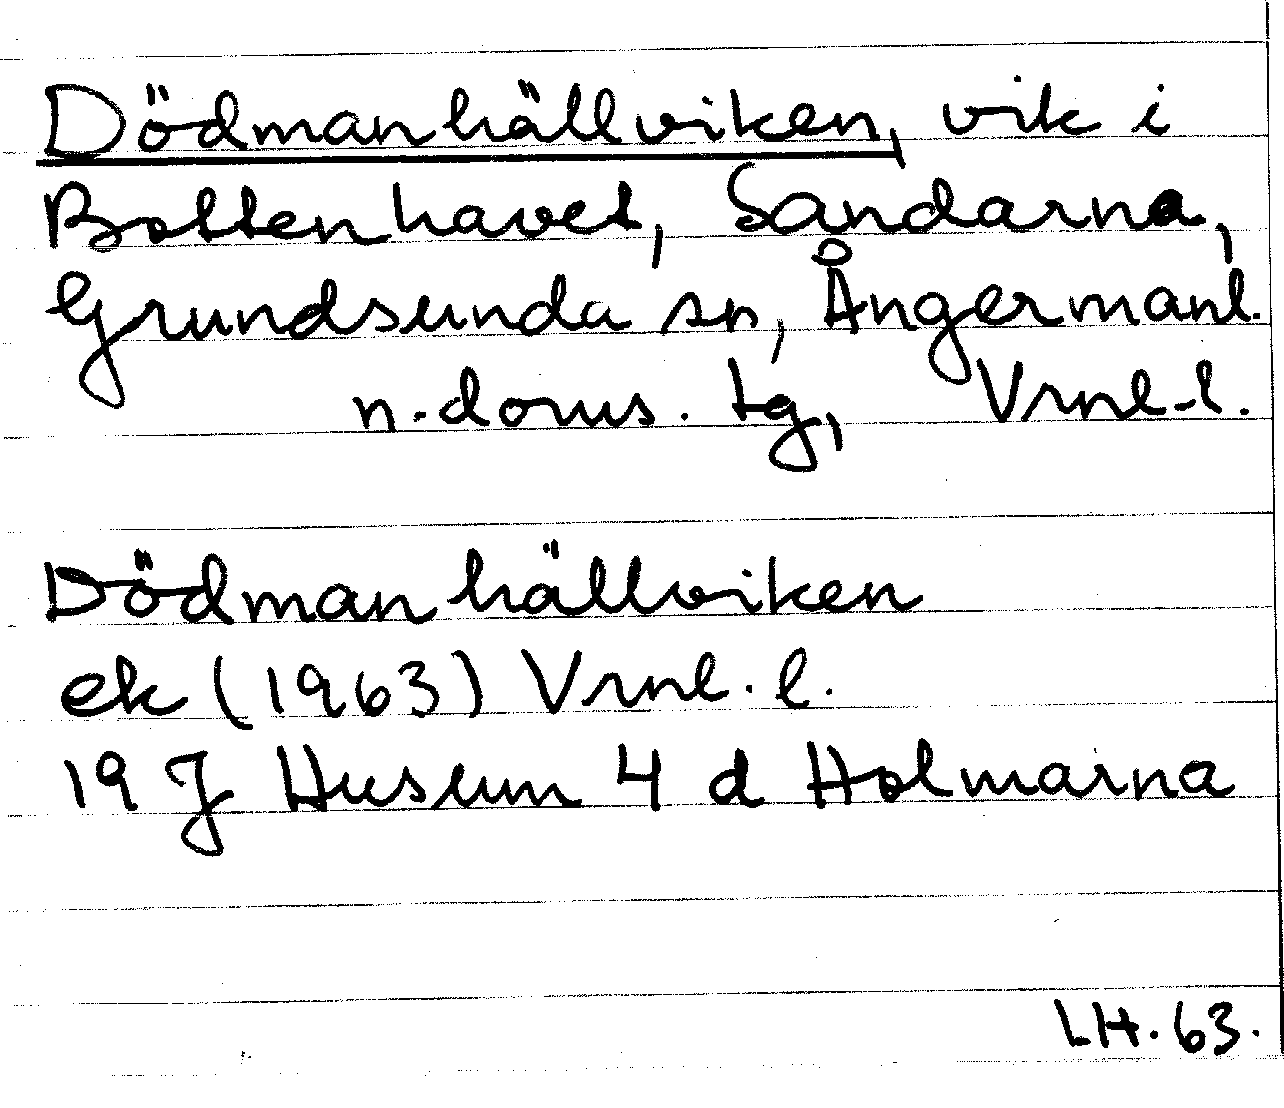 Dödmanhällviken, vik i
Bottenhavet, Sandarna,
Grundsunda sn, Ångermanl.
n. doms. tg, Vrnl-l.
Dödmanhällviken
ek (1963) Vrnl. l.
19 J Husum 4 d Holmarna
LH. 63.